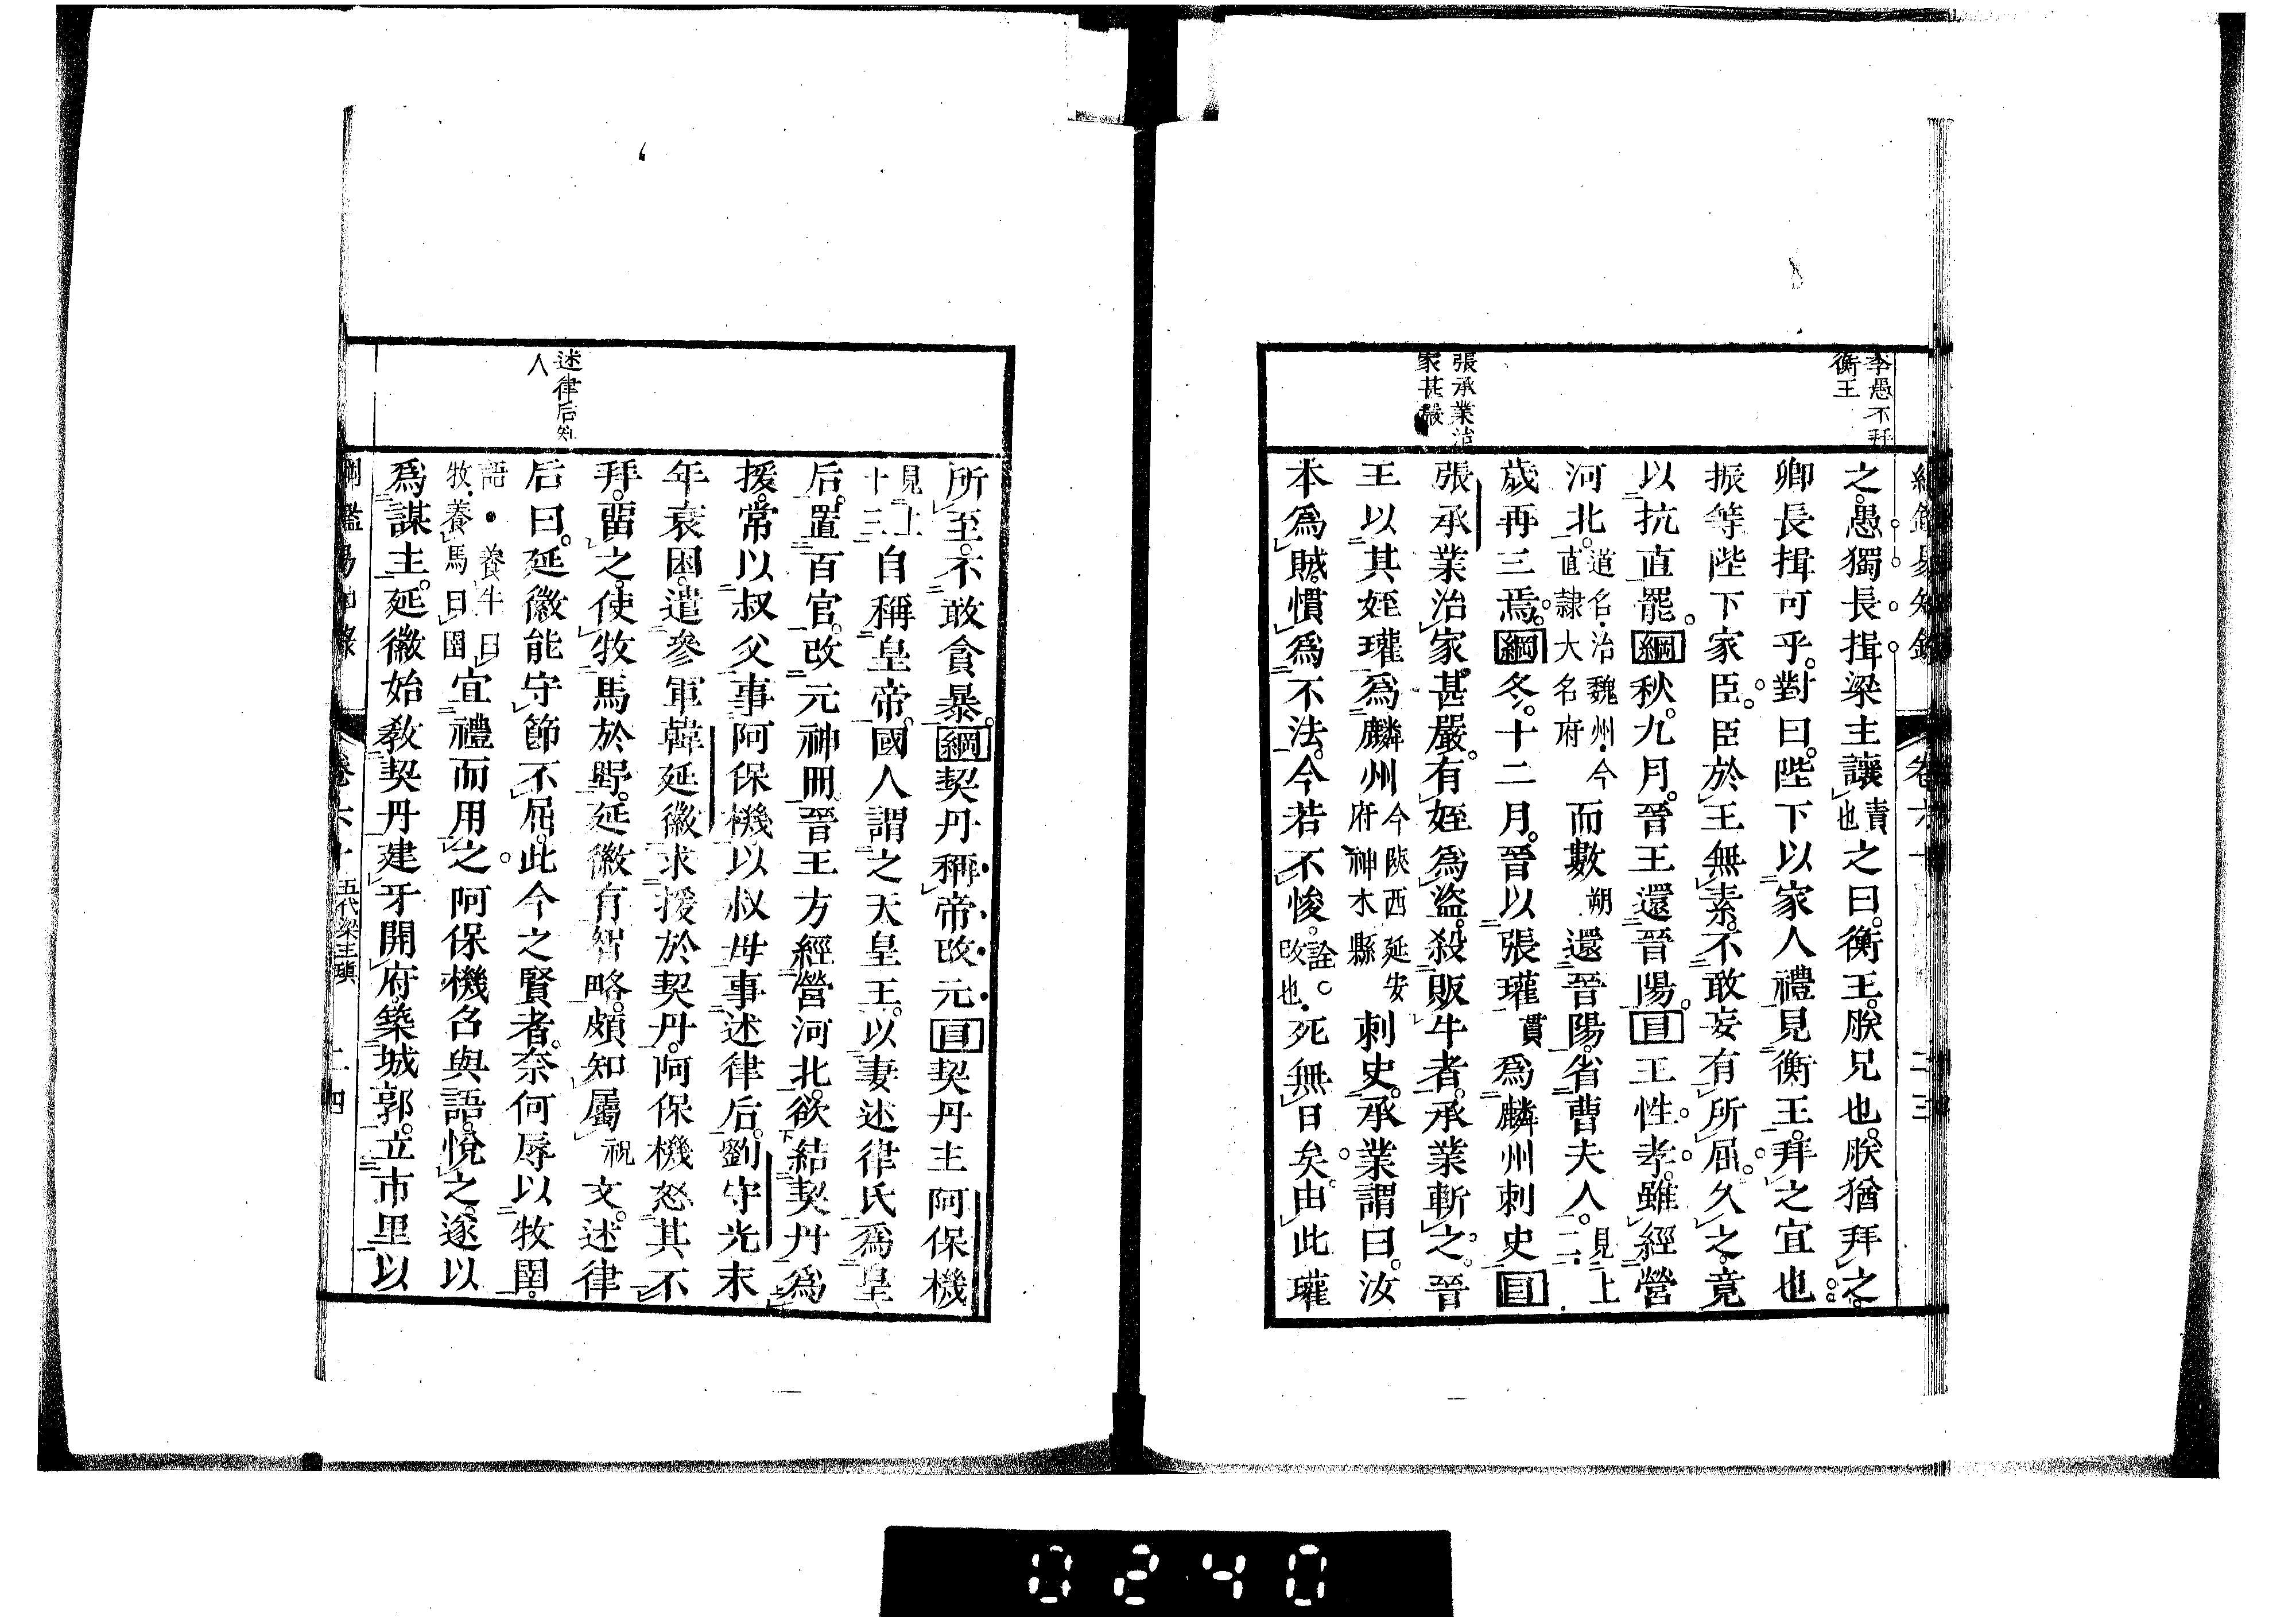 李愚不拜
衡王
張承業治
家甚嚴
之。愚獨長揖。梁主讓責也之曰。衡王。朕兄也。朕猶拜之。
卿長揖可乎。對曰。陛下以家人禮見衡王。拜之宜也
振等陛下家臣。臣於王無素。不敢妄有所屈。久之。竟
以抗直罷。綱秋。九月。晉王還晉陽。目王性孝。雖經營
河北。道名。治魏州。今直隷大名府而數朔還晉陽。省曹夫人。見上二
歲再三焉。綱冬。十二月。晉以張瓘貫爲麟州刺史目
張承業治家甚嚴。有姪爲盜。殺販牛者。承業斬之。晉
王以其姪瓘爲麟州今陝西延安府神木縣刺史。承業謂曰。汝
本爲賊。慣爲不法。今若不悛。詮。改也。死無日矣。由此瓘
述律后知
人
所至。不敢貪暴。綱契丹稱帝改元目契丹主阿保機
見上十三自稱皇帝。國人謂之天皇王。以妻述律氏爲皇
后。置百官。改元神冊。晉王方經營河北。欲結契丹爲
援。常以叔父事阿保機。以叔母事述律后。劉守光末
年衰困。遣參軍韓延徽求援於契丹。阿保機怒其不
拜。留之。使牧馬於野。延徽有智略。頗知屬祝文。述律
后曰。延徽能守節不屈。此今之賢者。奈何辱以牧圉。
語。養牛曰牧。養馬曰圉宜禮而用之。阿保機召與語。悅之。遂以
爲謀主。延徽始教契丹建牙開府。築城郭。立市里以
綱鑑易知錄 卷六十 五代梁主瑱 二四